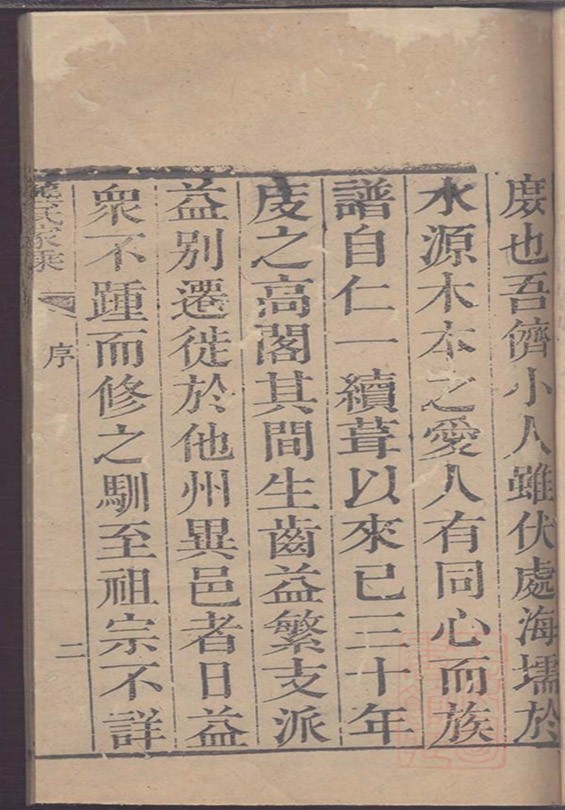 度也吾儕小人雖伏處海壖於
水源木本之愛人有同心而族
譜自仁一續葺以來已三十年
庋之高閣其間生齒益繁支派
益别遷徙於他州異邑者日益
衆不踵而修之馴至祖宗不詳
氏家乘
序
二